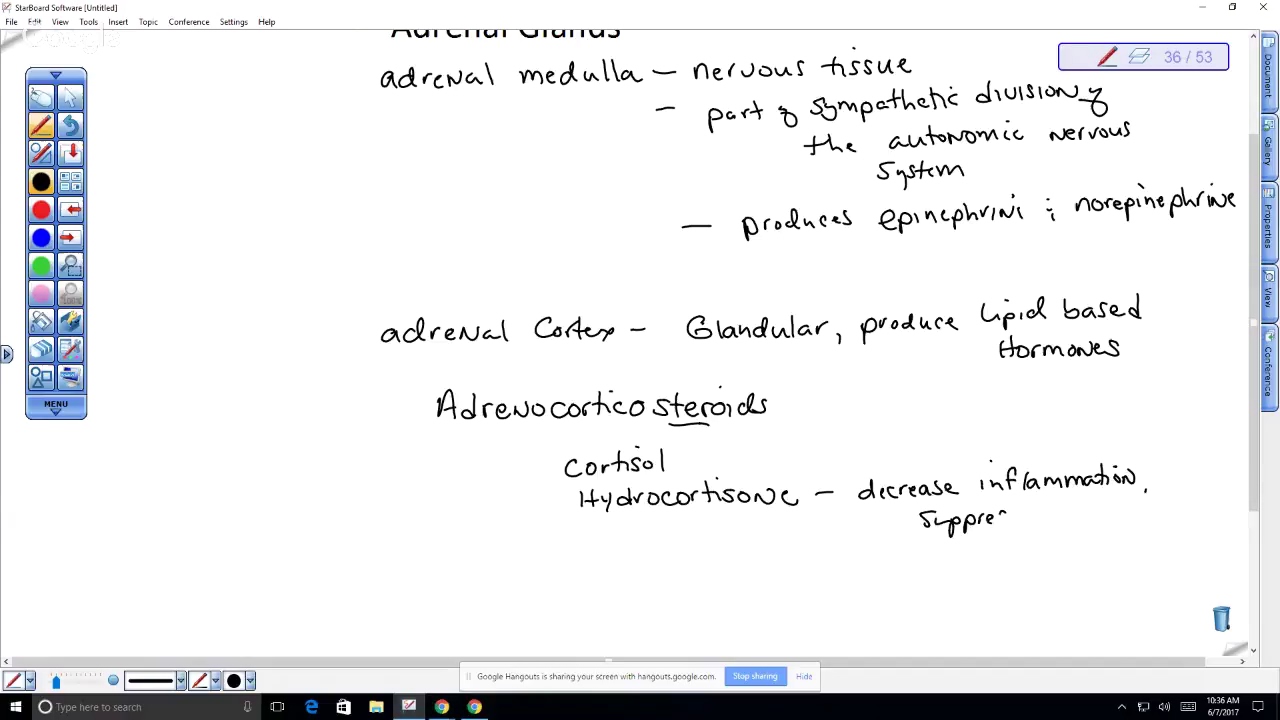 StarBoard Software [Untitled]
File Edit View Tools Insert Topic Conference Settings Help
Adrenal Glands
36 / 53
adrenal medulla — nervous tissue
— part of sympathetic division of
the autonomic nervous
system
— produces epinephrini & norepinephrine
adrenal Cortex - Glandular, produce Lipid based
Hormones
Adrenocorticosteroids
Cortisol
Hydrocortisone - decrease inflammation,
Suppre
MENU
Document
Gallery
Properties
View
Conference
Google Hangouts is sharing your screen with hangouts.google.com. Stop sharing Hide
Type here to search
10:36 AM
6/7/2017